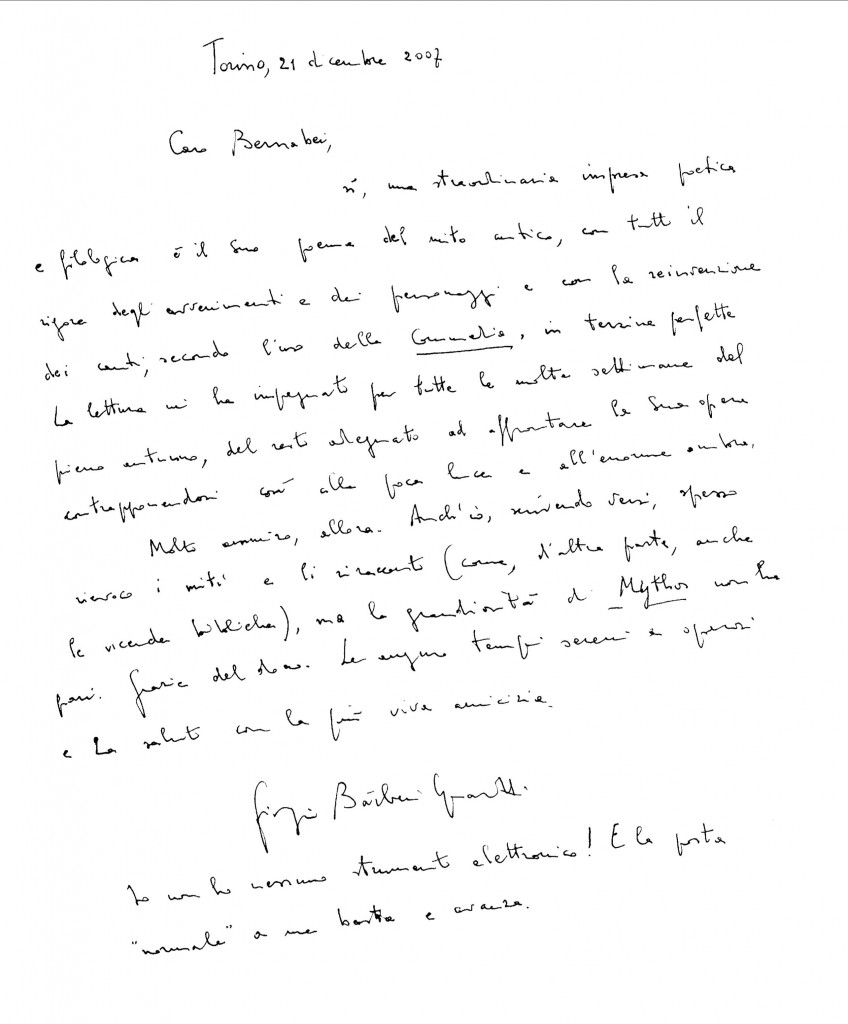 Torino, 21 dicembre 2007
Caro Bernabei,
sì, una straordinaria impresa poetica
e filologica è il Suo poema del mito antico, con tutto il
rigore degli avvenimenti e dei personaggi e con la reinvenzione
dei canti, secondo l'uso della Commedia, in terzine perfette
La lettura mi ha impegnato per tutte le molte settimane del
pieno autunno, del resto adeguato ad affrontare la Sua opera
contrapponendosi così alla poca luce e all'enorme ombra.
Molto ammiro, allora. Anch'io, scrivendo versi, spesso
rievoco i miti e li racconto (come, d'altra parte, anche
le vicende bibliche), ma la grandiosità di Mythos non ha
pari. Grazie del dono. Le auguro tempi sereni e operosi
e La saluto con la più viva amicizia.
Giorgio Bàrberi Squarotti
Io non ho nessuno strumento elettronico! E la posta
"normale" a me basta e avanza.